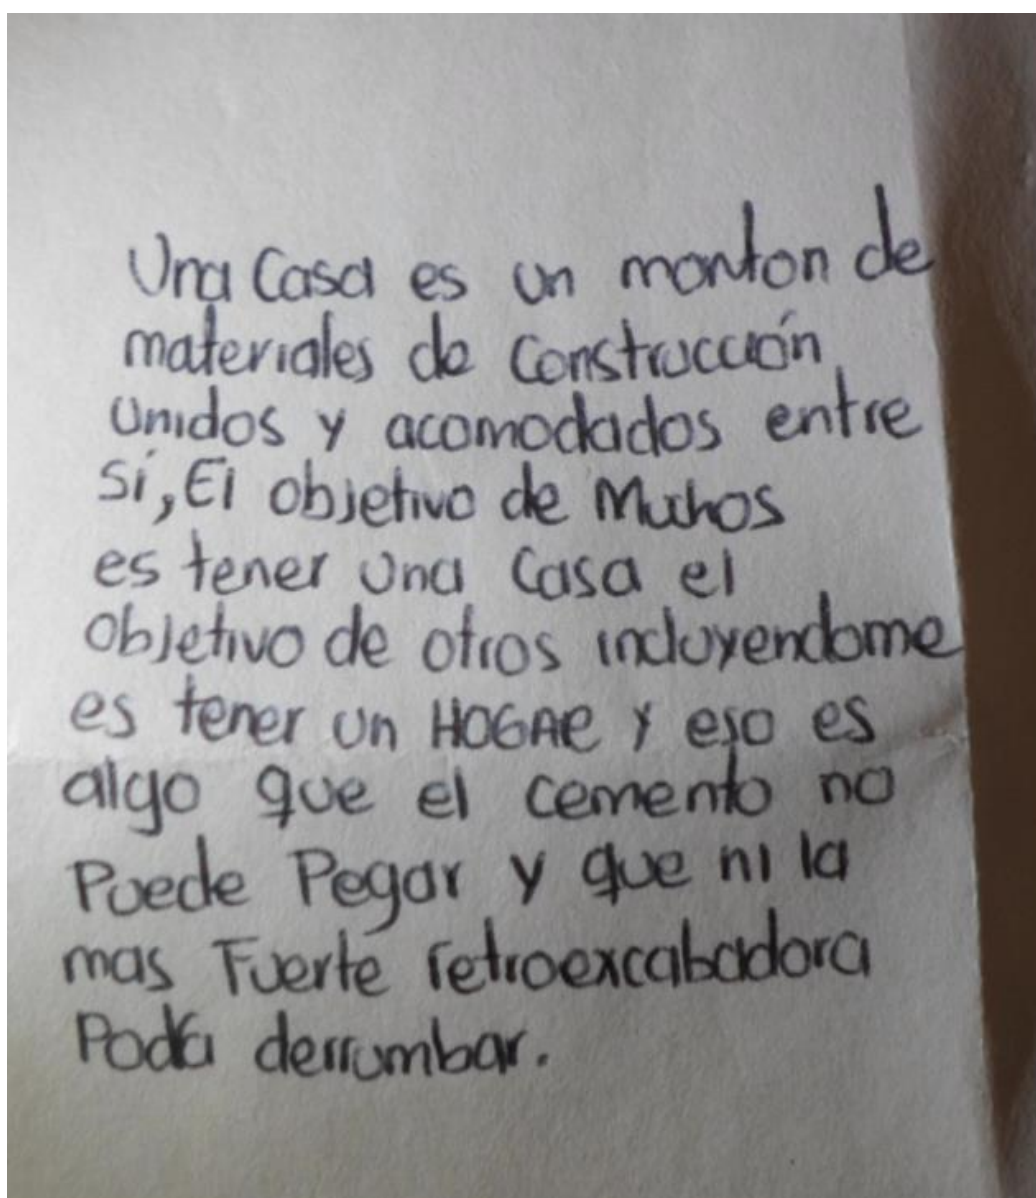 Una Casa es un monton de
materiales de Construcción
Unidos y acomodados entre
Sí, El objetivo de Muchos
es tener Una Casa el
Objetivo de otros incluyendome
es tener un HOGAR y eso es
algo que el cemento no
Puede Pegar y que ni la
mas Fuerte retroexcabadora
Podía derrumbar.